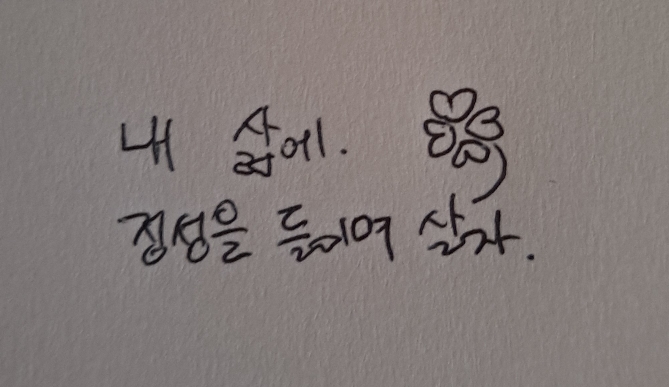 내 삶에.
정성을 들이며 살자.